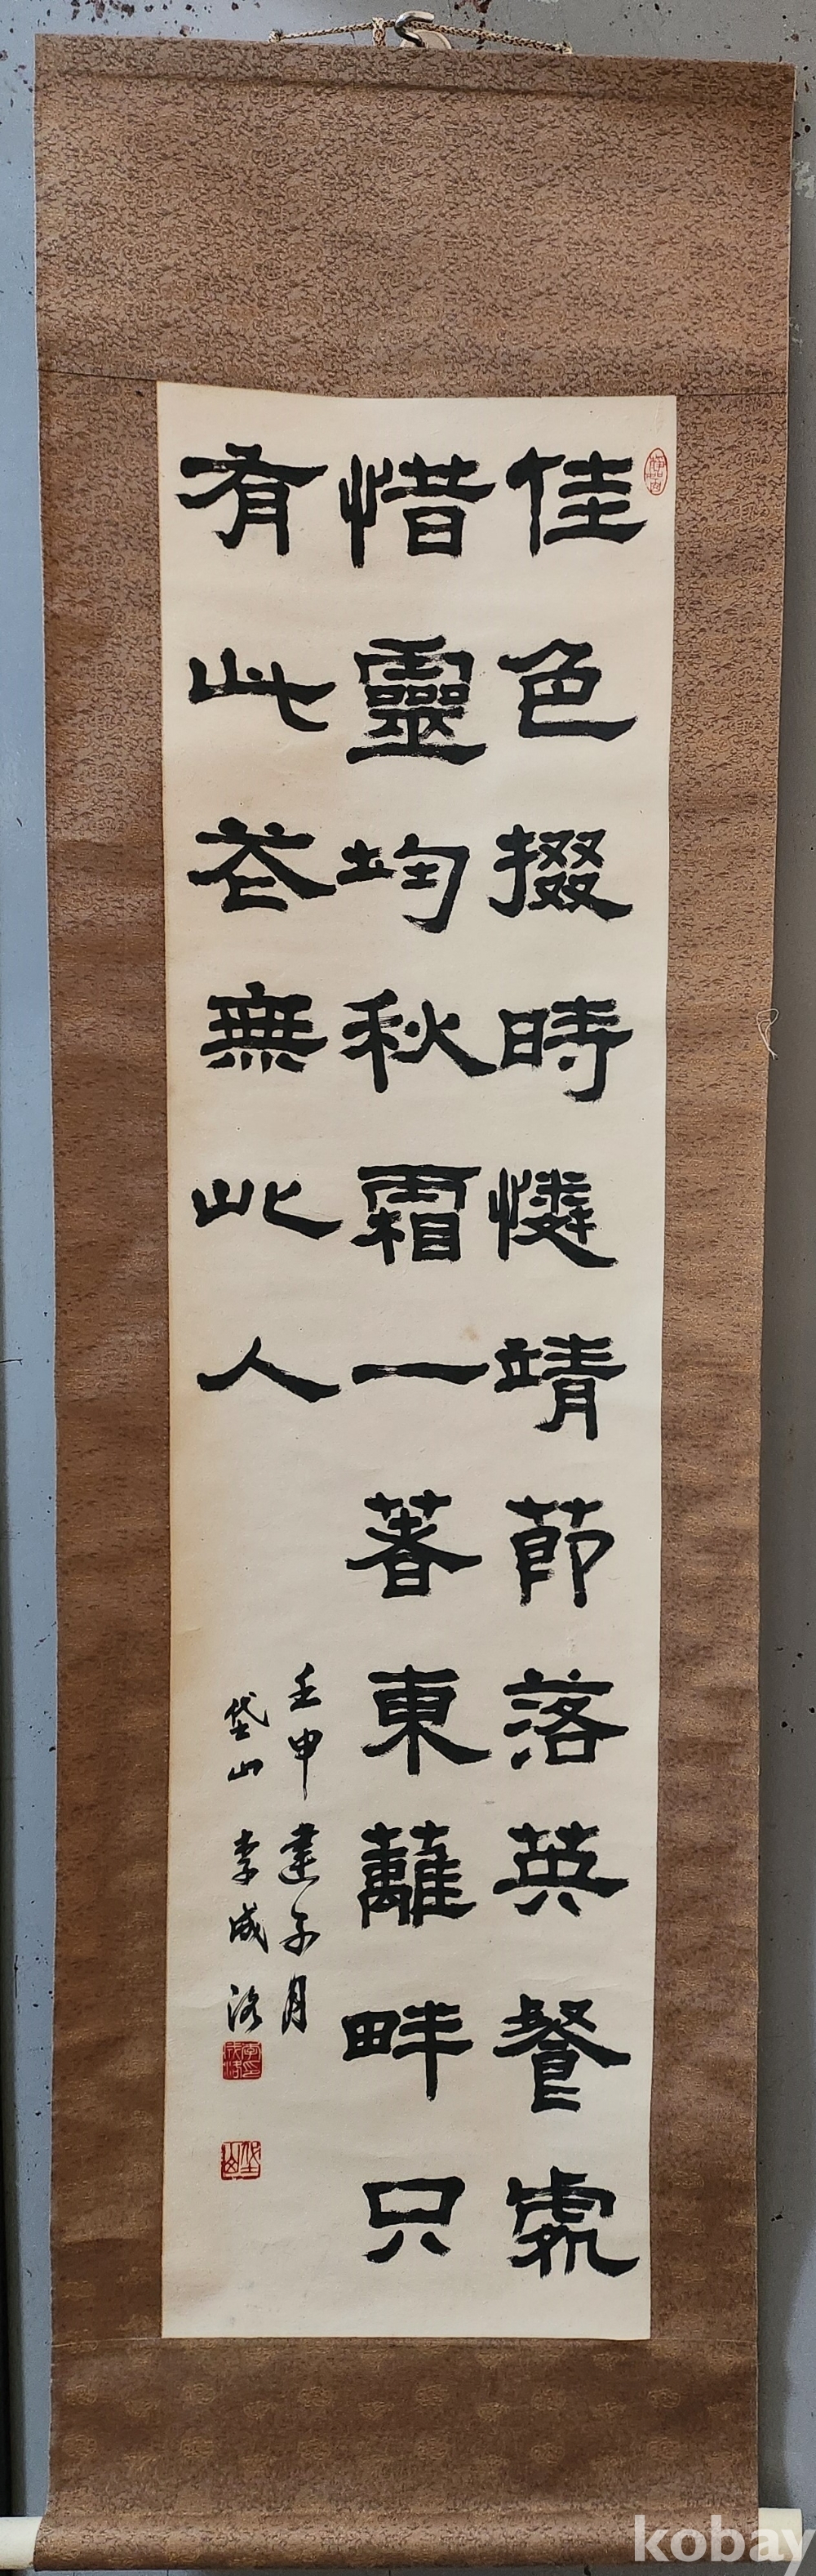 佳色掇時憐靖節落英餐處
惜靈均秋霜一著東籬畔只
有此花無此人
壬申建子月
垈山 李成洛
kobay